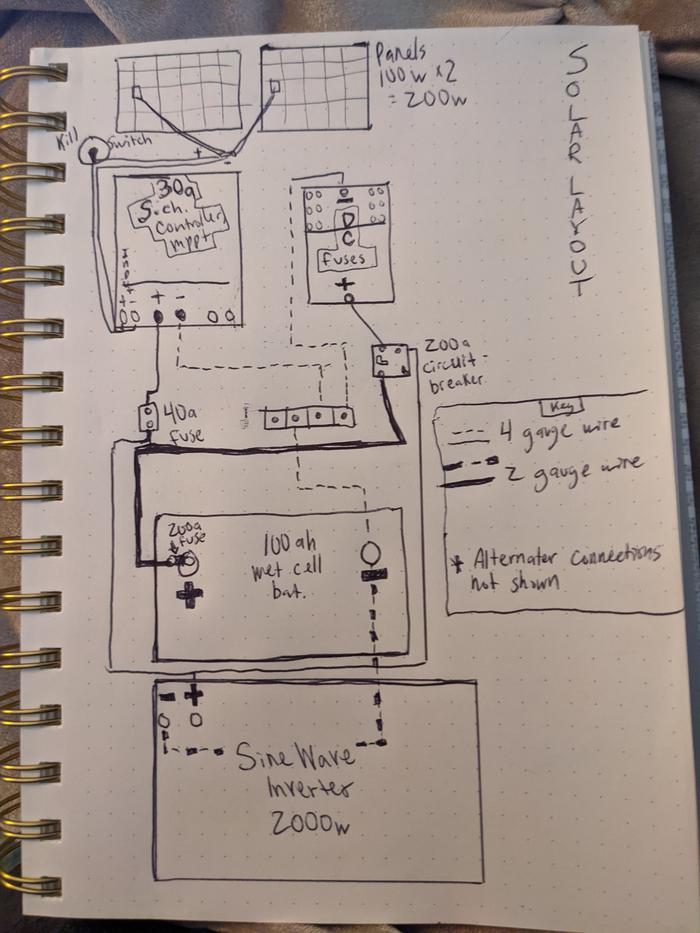 SOLAR LAYOUT
Panels
100w x2
= 200w
Kill
Switch
+
-
30a
S.ch.
Controller
mppt
+ -
+ -
-
DC
fuses
+
200a
circuit-
breaker
40a
fuse
Key
4 gauge wire
2 gauge wire
* Alternater Connections
not shown
200a
fuse
+
100ah
wet cell
bat.
-
- +
Sine Wave
Inverter
2000w